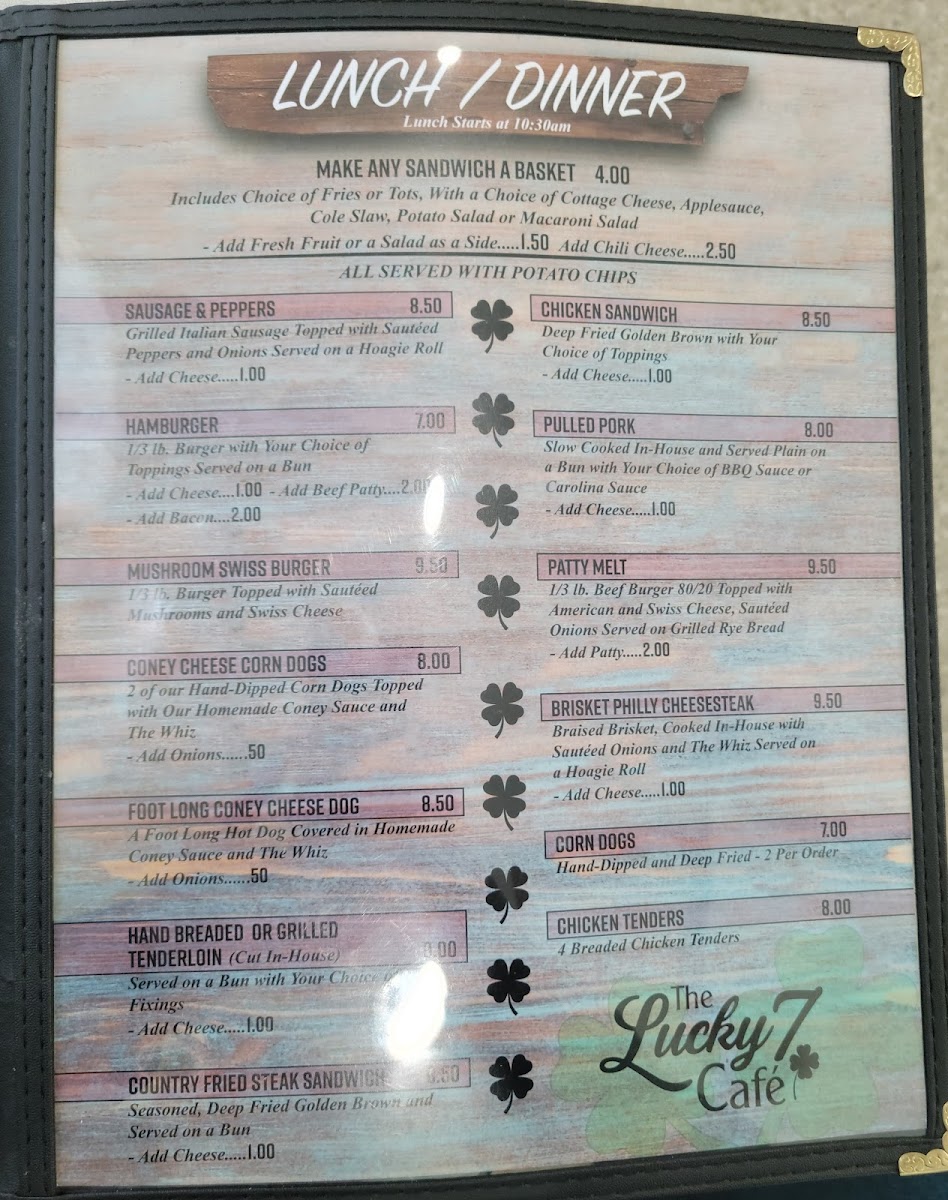 LUNCH / DINNER
Lunch Starts at 10:30am
MAKE ANY SANDWICH A BASKET 4.00
Includes Choice of Fries or Tots, With a Choice of Cottage Cheese, Applesauce,
Cole Slaw, Potato Salad or Macaroni Salad
- Add Fresh Fruit or a Salad as a Side.....1.50 Add Chili Cheese.....2.50
ALL SERVED WITH POTATO CHIPS
SAUSAGE & PEPPERS 8.50
Grilled Italian Sausage Topped with Sautéed
Peppers and Onions Served on a Hoagie Roll
- Add Cheese.....1.00
HAMBURGER 7.00
1/3 lb. Burger with Your Choice of
Toppings Served on a Bun
- Add Cheese....1.00 - Add Beef Patty....2.00
- Add Bacon....2.00
MUSHROOM SWISS BURGER 9.50
1/3 lb. Burger Topped with Sautéed
Mushrooms and Swiss Cheese
CONEY CHEESE CORN DOGS 8.00
2 of our Hand-Dipped Corn Dogs Topped
with Our Homemade Coney Sauce and
The Whiz
- Add Onions......50
FOOT LONG CONEY CHEESE DOG 8.50
A Foot Long Hot Dog Covered in Homemade
Coney Sauce and The Whiz
- Add Onions......50
HAND BREADED OR GRILLED
TENDERLOIN (Cut In-House)
Served on a Bun with Your Choice
Fixings
- Add Cheese.....1.00
COUNTRY FRIED STEAK SANDWICH
Seasoned, Deep Fried Golden Brown and
Served on a Bun
- Add Cheese.....1.00
CHICKEN SANDWICH 8.50
Deep Fried Golden Brown with Your
Choice of Toppings
- Add Cheese.....1.00
PULLED PORK 8.00
Slow Cooked In-House and Served Plain on
a Bun with Your Choice of BBQ Sauce or
Carolina Sauce
- Add Cheese.....1.00
PATTY MELT 9.50
1/3 lb. Beef Burger 80/20 Topped with
American and Swiss Cheese, Sautéed
Onions Served on Grilled Rye Bread
- Add Patty.....2.00
BRISKET PHILLY CHEESESTEAK 9.50
Braised Brisket, Cooked In-House with
Sautéed Onions and The Whiz Served on
a Hoagie Roll
- Add Cheese.....1.00
CORN DOGS 7.00
Hand-Dipped and Deep Fried - 2 Per Order
CHICKEN TENDERS 8.00
4 Breaded Chicken Tenders
The
Lucky 7
Café